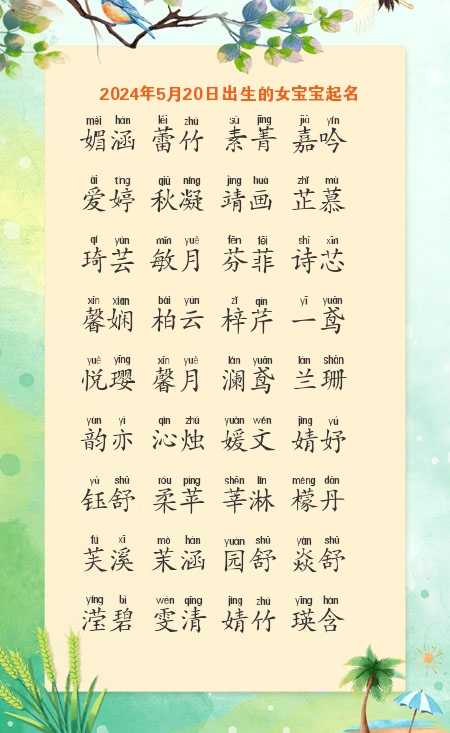 2024年5月20日出生的女宝宝起名
mèi hán lěi zhú sù jīng jiā yín
媚涵 蕾竹 素菁 嘉吟
ài tíng qiū níng jìng huà zhǐ mù
爱婷 秋凝 靖画 芷慕
qí yún mǐn yuè fēn fēi shī xīn
琦芸 敏月 芬菲 诗芯
xīn xián bǎi yún zǐ qín yī yuān
馨娴 柏云 梓芹 一鸢
yuè yīng xīn yuè lán yuān lán shān
悦璎 馨月 澜鸢 兰珊
yùn yì qìn zhú yuàn wén jìng yú
韵亦 沁烛 媛文 婧妤
yù shū róu píng shēn lín méng dān
钰舒 柔苹 莘淋 檬丹
fú xī mò hán yuán shū yàn shū
芙溪 茉涵 园舒 焱舒
yíng bì wén qīng jìng zhú yīng hán
滢碧 雯清 婧竹 瑛含